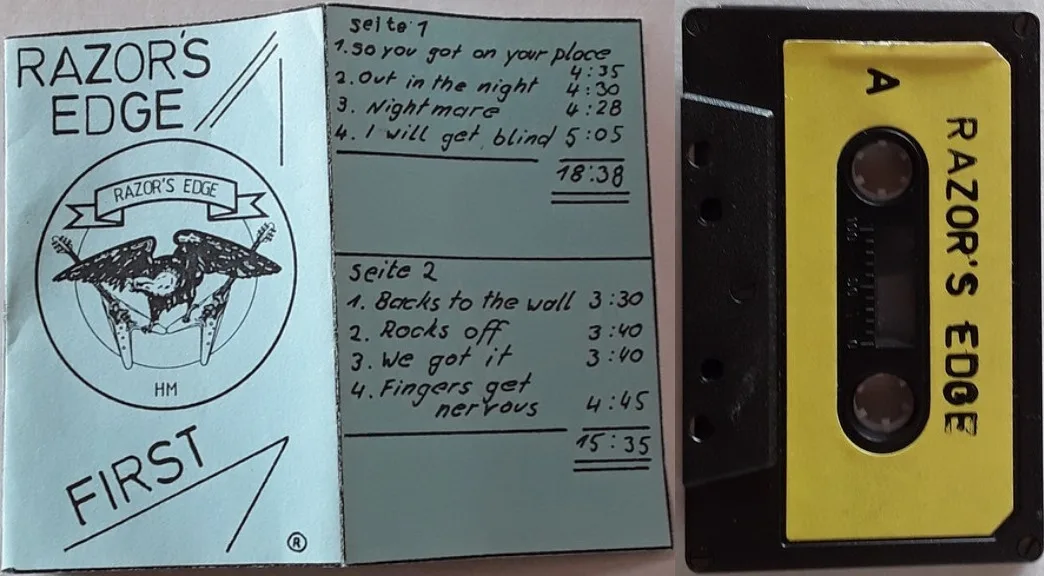 RAZOR'S
EDGE
RAZOR'S EDGE
HM
FIRST
®
seite 1
1. So you got on your place
4:35
2. Out in the night 4:30
3. Nightmare 4:28
4. I will get blind 5:05
18:38
seite 2
1. Backs to the wall 3:30
2. Rocks off 3:40
3. We got it 3:40
4. Fingers get
nervous 4:45
15:35
A
RAZOR'S EDGE
100 50 0